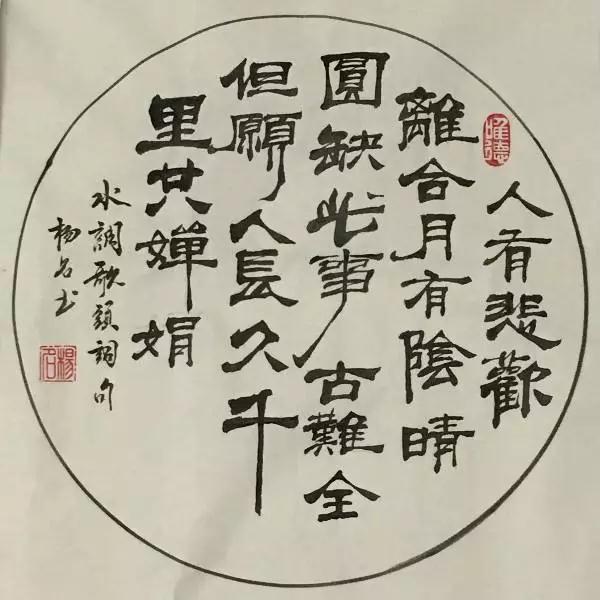 人有悲歡
離合月有陰晴
圓缺此事古難全
但願人長久千
里共嬋娟
水調歌頭詞句
杨名书
楊名